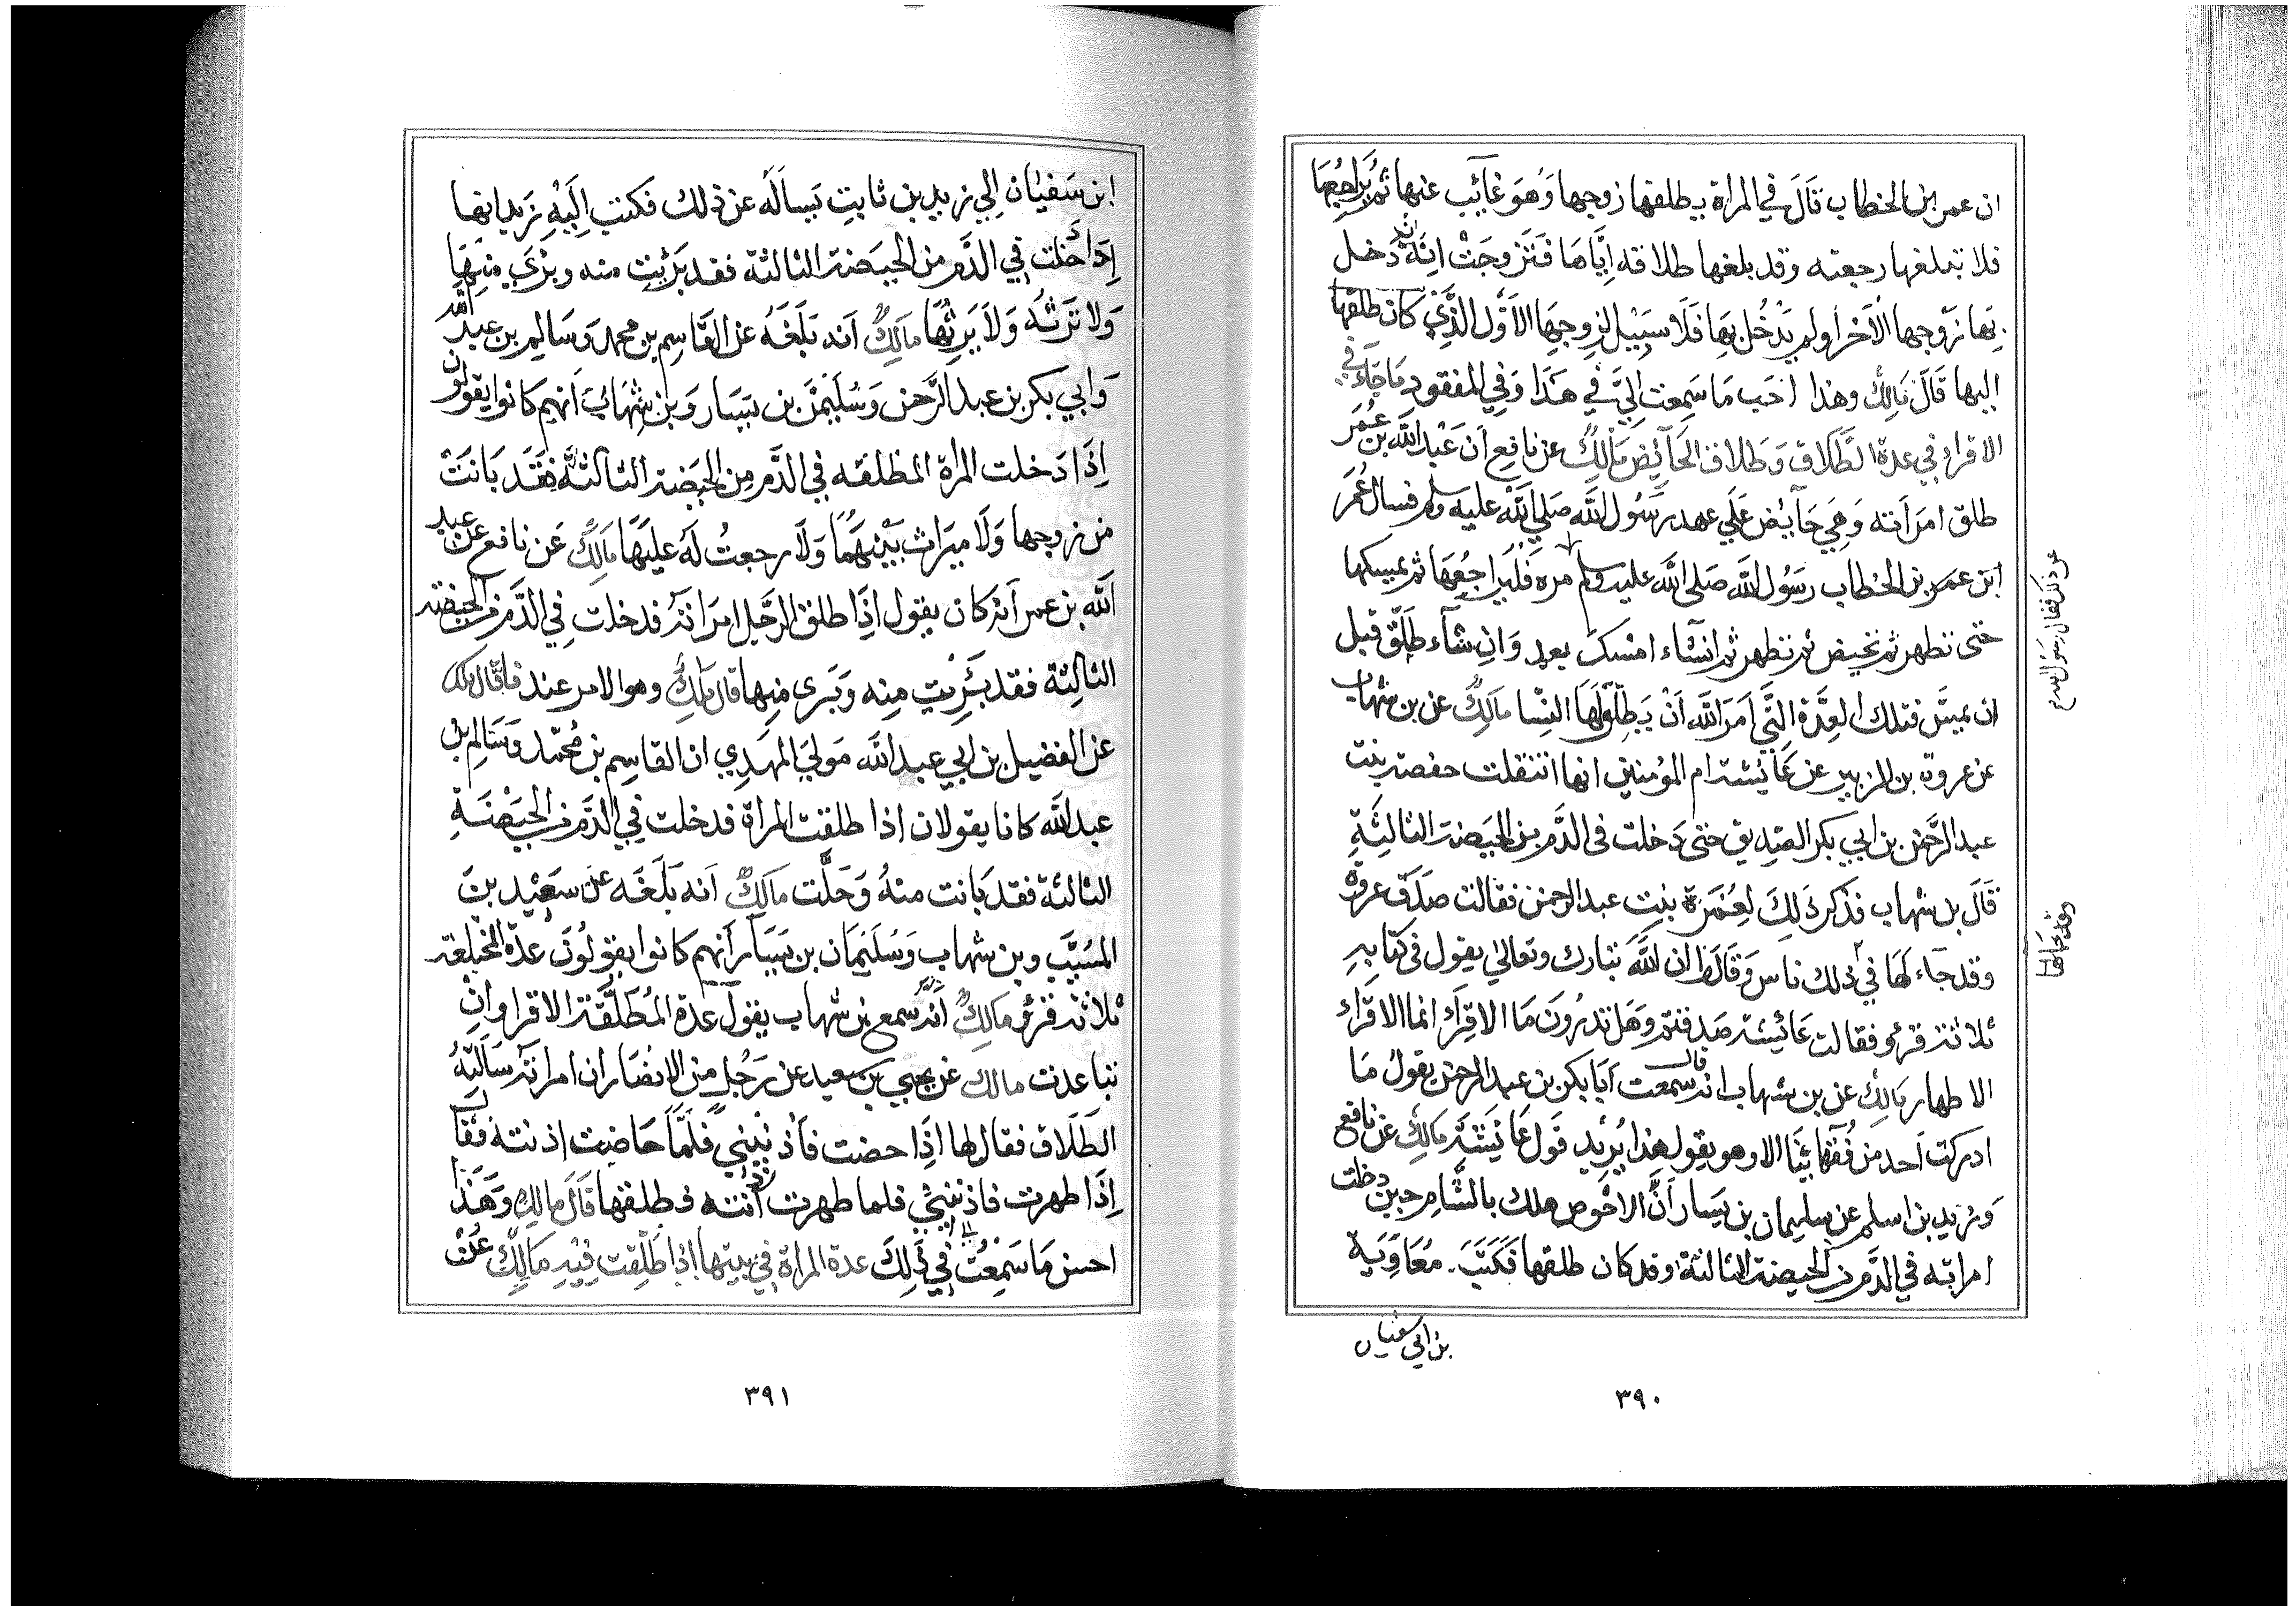 ان عمر بن الخطاب قَالَ في المراة يطلقها زوجها وَهُوَ غَائِب عنها ثم يُرَاجِعُهَا
فلا يبلغها رجعته وقد بلغها طلاقه اِيَّاهَا فَتَزَوجَتْ اِنَّه دَخل
بِها زَوجها الأخر أولم يَدْخُل بِهَا فَلَا سَبِيْل لِزوجِهَا الأوَّل الذَّي كان طلقها
اليها قَالَ مَالِكٌ وهذا احَب مَا سَمِعت اِليَّ في هَذَا وَفي المفقود مَاجَاءَ في
الاقراء في عدة الطَّلاق وَطَلاق الحَآئِض مَالِكٌ عن نافِع اَن عَبْد الله بن عُمَر
طلق امرَاَته وَهِيَ حَايُض عَلَي عهد رَسُول الله صَلي الله عليه وسلم فسال عُمَر
ابن عمر بن الخطاب رَسُول الله صَلى الله عليه وسلم مره فَلْيراجِعُهَا ثم يمسكها
حَتى تطهر ثم تحيض ثم تطهر ثم ان شاء امْسَكَ بعد وَاِن شآء طَلَّق قبل
ان يمسَّ فتلك العِدَّة التَّي اَمَرَ الله اَنْ يطلَّق لَهَا النِسا مَالِكٌ عن بن شهاب
عن عروة بن الزبير عن عَائشة ام المؤمنين انها انتقلت حفصة بنت
عبد الرَّحمن بن ابي بكر الصديق حتى دَخلت فى الدَّم من الحيَضة الثالِثَةِ
قَالَ بن شهاب فذكر ذَلِكَ لِعُمَرَة بِنْتِ عبد الرحمن فقالت صدَقَ عروة
وقد جآء لهَا في ذلك ناس وَقَالَوا ان اللَّهَ تبارك وتعالي يقول فى كتابهِ
ثلاثة قرءٍ فقالت عَائِيشة صَدقتم وَهَل تدرُونَ مَا الاقِرَاء انما الاقرَاء
الاطهار مَالِكٌ عن بن شهاب انه قال سمعت اَبَابكر بن عبد الرحمن يقول مَا
ادركت اَحد من فُقَهآئِنَا الا وهو يقول هذا يُرِيْد قَول عَائِشَة مَالِكٌ عن نافع
وَزيد بن اسلم عن سليمان بن يَسار اَنَّ الاحْوص هلك بالشَّام حين دخلت
امراته في الدَّم من الحيضة الثالثة وقد كان طلقها فَكَتَبَ مُعَاوِيَة
بن ابي سفيان
٣٩٠
ابن سَفيٰان اِلي زيد بن ثابتٍ يَساَلَه عن ذلك فكتب اِلَيْهِ زَيد انها
اِذَا دَخلت فِي الدَّم من الحيَضة الثالثة فقد بَرْئِت منه وبرْي مِنهَا
وَلا تَرثُه وَلَا يَرِثُهَا مَالِكٌ اَنه بَلَغَهُ عن القاسِم بن محمد وَسَالِم بن عبد الله
وَابي بكر بن عبد الرَّحمن وَسُلَيْمٰن بن يسَار وَبن شِهَاب اَنهم كانوا يقولون
اِذَا دَخلت المراة المطلقه في الدَّم مِن الحَيضة الثالثة فقَد بَانَتْ
من زوجها وَلَا ميَراث بَيْنهُمَا وَلَا رجعتُ لَهُ عَليَهَا مَالِكٌ عَن نافع عن عبد
الله بن عمر اَنه كان يقول اذِا طلق الرَّجل امراَته فدخلت فِي الدَّم من الحيضة
الثالِثة فقد بَئرِيت مِنه وَبَرى مِنها قال مَالِكٌ وهو الامر عندنا قال مالك
عن الفضيل بن ابي عبد الله مَوليَ المهَدِي ان القاسِم بن مُحمَّد وَسَالِم بن
عبد الله كانا يقولان اذا طلقت المراة فدخلت فِي الدَّم من الحيَضَةِ
الثالثة فقد بَانت منهُ وَحَلَّت مَالِكٌ اَنه بَلَغَه عن سَعِيْد بنَ
المسُيَّب وبن شهاب وَسُلَيْمَان بن يَسَار اَنهم كانوا يقولُونَ عدة المخْتلِعة
ثلاثة قرءٍ مَالِكٌ اَنه سمع بن شهاب يقول عدة المُطَلَّقَة الاقرا وانْ
تباعدت مالك عن يحيي بن سعيد عن رَجُلٍ من الانصَار ان امراته سَاَلتهُ
الطَلَاق فقال لها اِذَا حضت فآذنِيْنِي فَلمَّا حَاضِت اذنته فقال
اِذَا طهرت فاذنيْنِي فلما طهرت اذنته فطلقها قَالَ مالك وَهَذَا
احسن مَا سَمِعْتُ في ذَلِكَ عدة المراة في بيتها اذا طَلِّقت فِيْهِ مَالِكٌ عَنْ
٣٩١